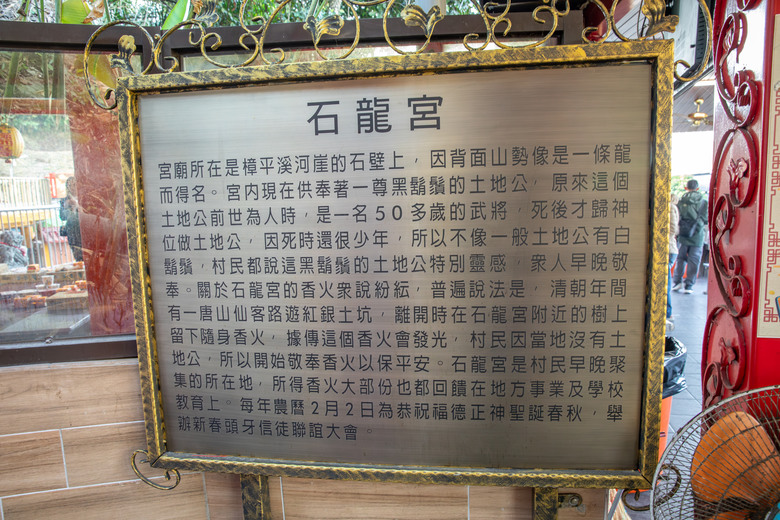 石龍宮
宮廟所在是樟平溪河崖的石壁上，因背面山勢像是一條龍
而得名。宮內現在供奉著一尊黑鬍鬚的土地公，原來這個
土地公前世為人時，是一名50多歲的武將，死後才歸神
位做土地公，因死時還很少年，所以不像一般土地公有白
鬍鬚，村民都說這黑鬍鬚的土地公特別靈感，衆人早晚敬
奉。關於石龍宮的香火衆說紛紜，普遍說法是，清朝年間
有一唐山仙客路遊紅銀土坑，離開時在石龍宮附近的樹上
留下隨身香火，據傳這個香火會發光，村民因當地沒有土
地公，所以開始敬奉香火以保平安。石龍宮是村民早晚聚
集的所在地，所得香火大部份也都回饋在地方事業及學校
教育上。每年農曆2月2日為恭祝福德正神聖誕春秋，舉
辦新春頭牙信徒聯誼大會。